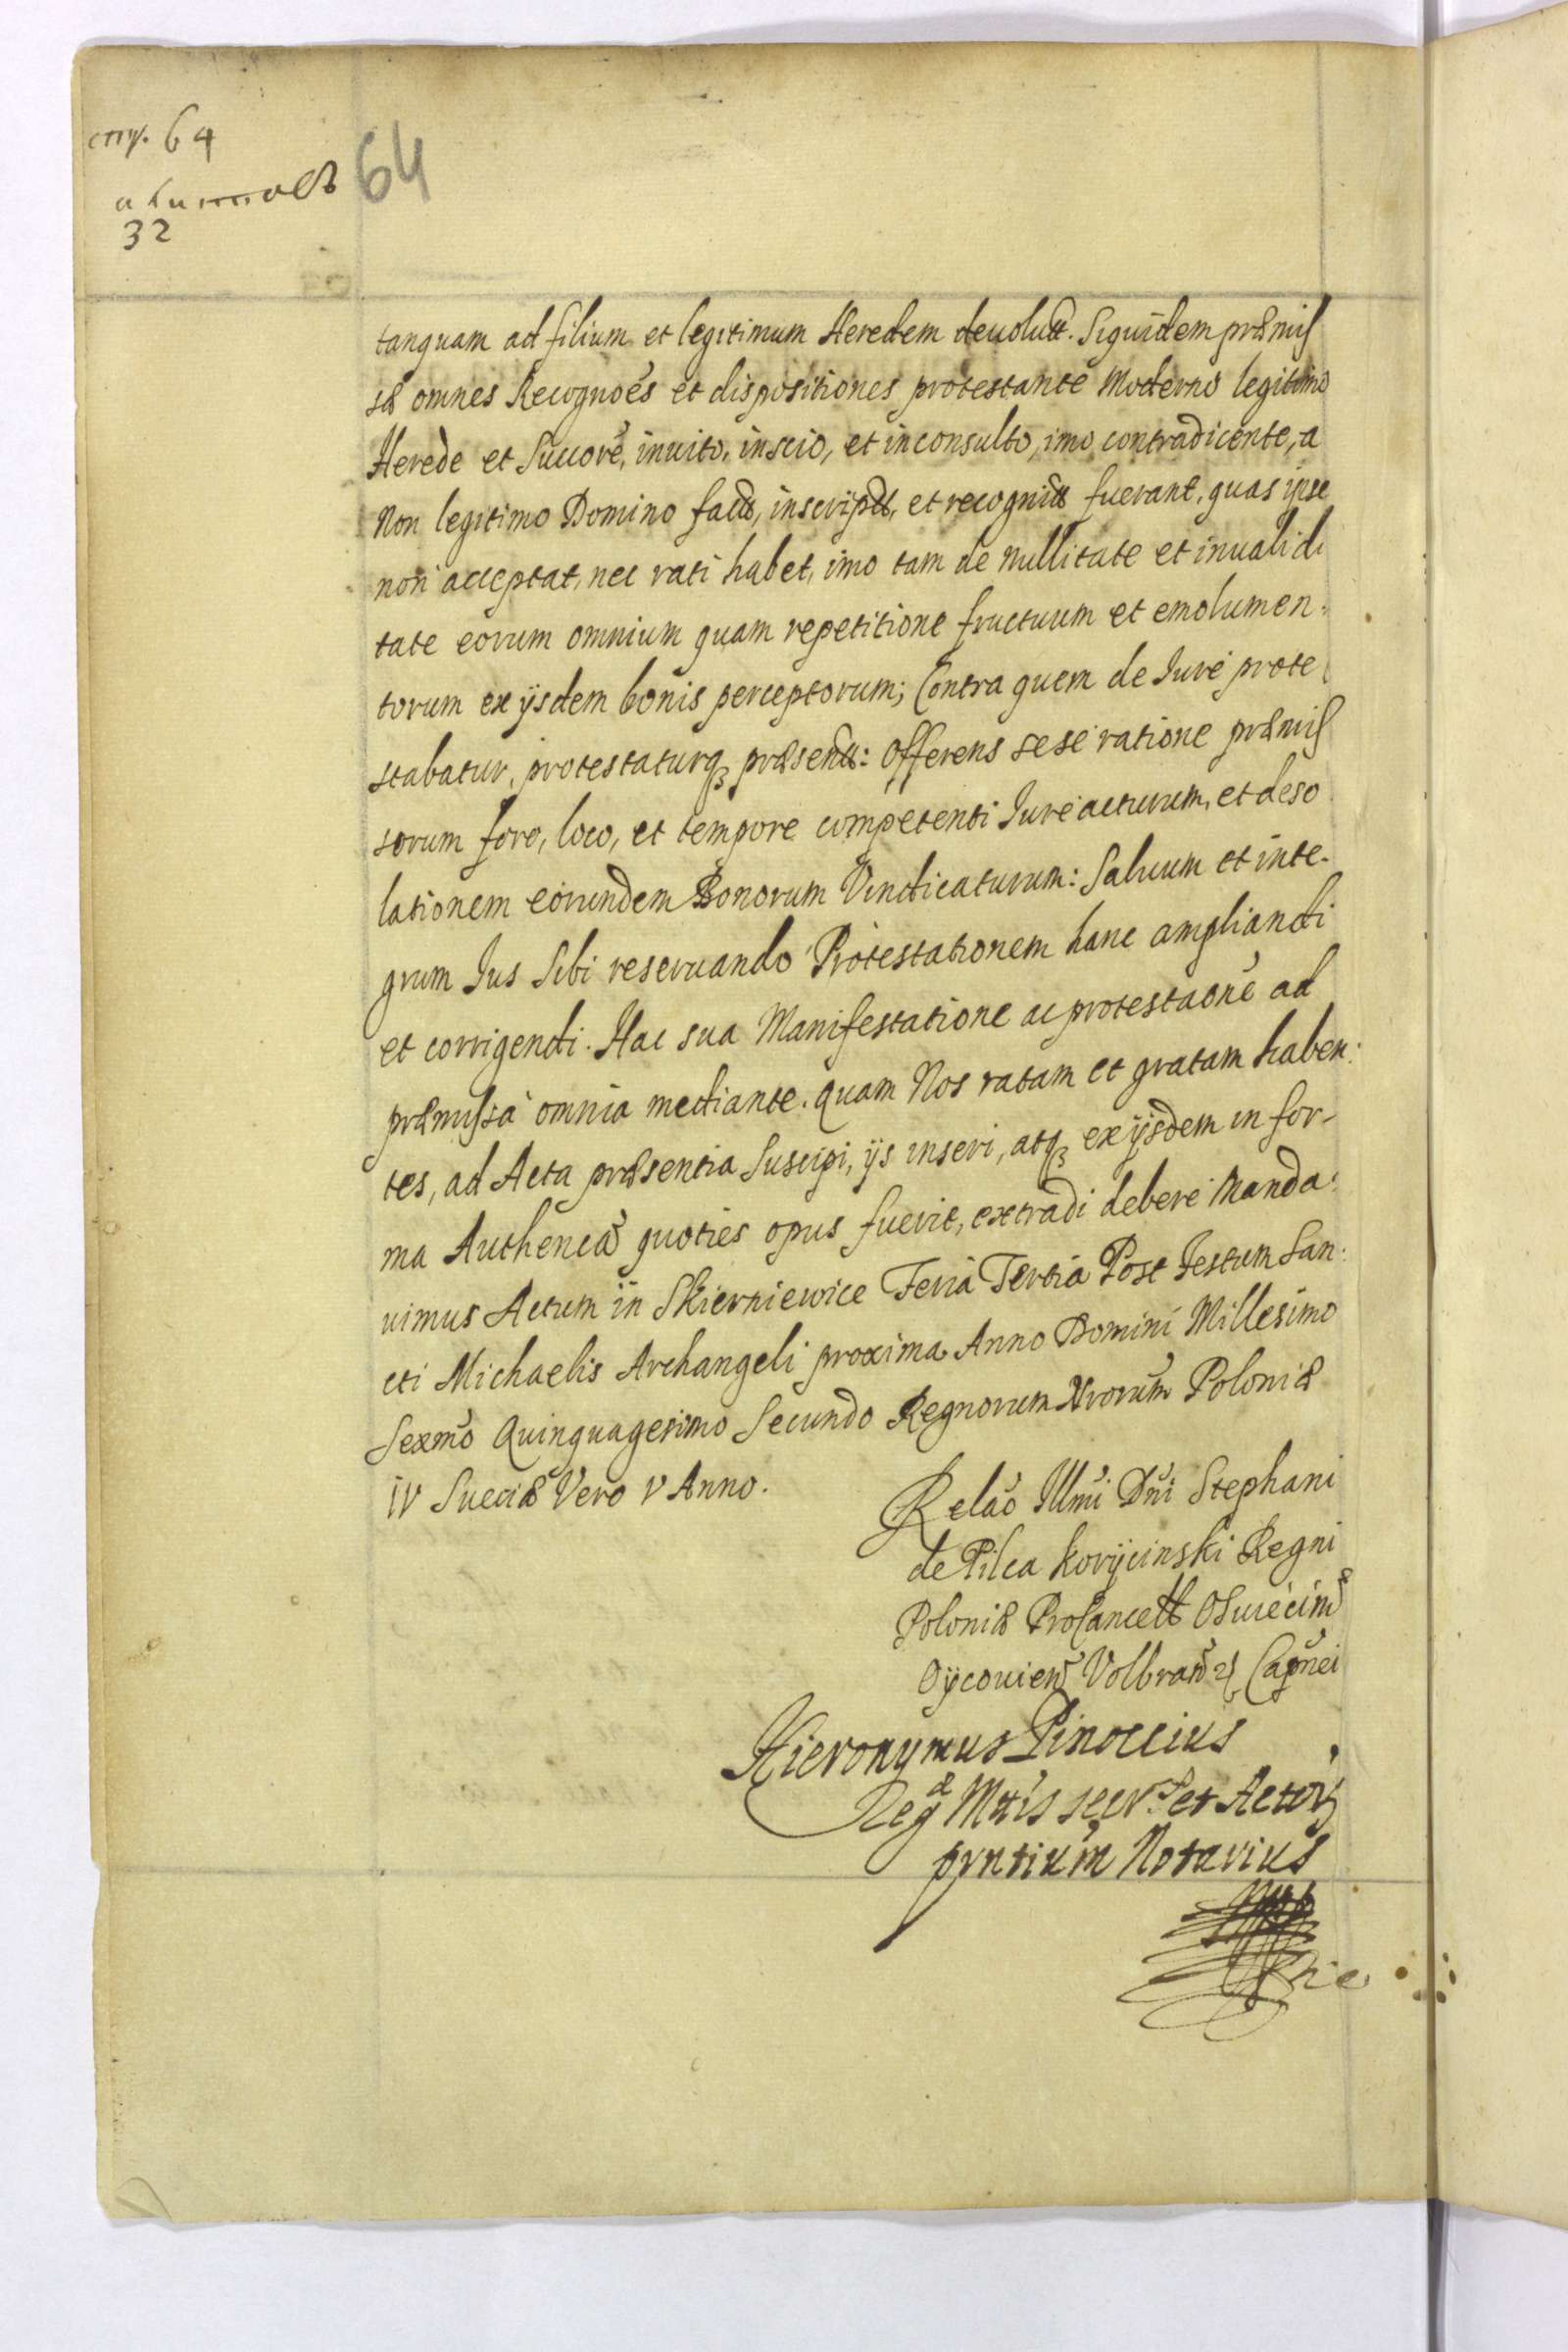 стр. 64
64
32
tanquam ad filium et legitimum Heredem deuolutæ. Siquidem præmis
sæ omnes Recognoẽs et dispositiones protestante Moderno legitimo
Herede et Succorẽ, inuito, inscio, et inconsulto, imo contradicente, a
Non legitimo Domino factæ, inscriptæ, et recognitæ fuerant, quas ipse
non acceptat, nec rati habet, imo tam de nullitate et inualidi
tate eorum omnium quam repetitione fructuum et emolumen:
torum ex ijsdem bonis perceptorum; Contra quem de Iure prote
stabatur, protestaturqꝫ præsentt: Offerens sese ratione præmis
sorum foro, loco, et tempore competenti Iure acturum, et deso
lationem eorundem Bonorum Vindicaturum: Saluum et inte-
grum Ius Sibi reseruando Protestationem hanc ampliandi
et corrigendi. Hac sua Manifestatione ac protestaonẽ ad
præmissa omnia mediante. Quam Nos ratam et gratam haben:
tes, ad Acta præsentia Suscipi, ijs inseri, atqꝫ ex ijsdem in for-
ma Authencã quoties opus fuerit, extradi debere manda:
uimus Actum in Skierniewice Feria Tertia Post Festum San:
cti Michaelis Archangeli proxima Anno Domini Millesimo
Sexmõ Quinquagesimo Secundo Regnorum Nrorum̃ Poloniæ
IV Sueciæ Vero V Anno.
Relaõ Illmĩ Dnĩ Stephani
de Pilca Korycinski Regni
Poloniæ Procancell Osviecim̃
Oycouien̄ Volbram̃ Capnẽi
Hieronymus Pinoccius
Reg Mttis secr. et Actor
pnntium Notarius